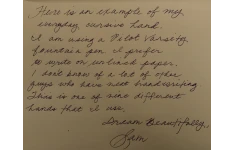 Here is an example of my
everyday cursive hand.
I am using a Pilot Varsity
fountain pen. I prefer
to write on unlined paper.
I don't know of a lot of other
guys who have neat handwriting
This is one of nine different
hands that I use.
Dream Beautifully,
Sam